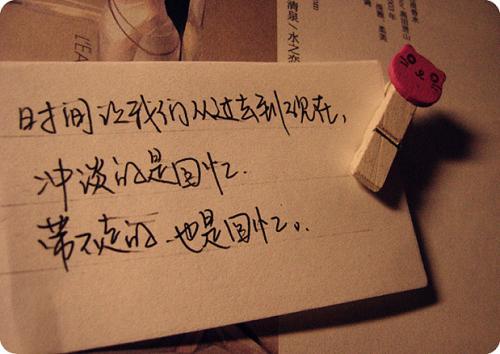 时间让我们从过去到现在，
冲淡的是回忆.
带不走的 也是回忆。.
清泉/水之恋
L'EA